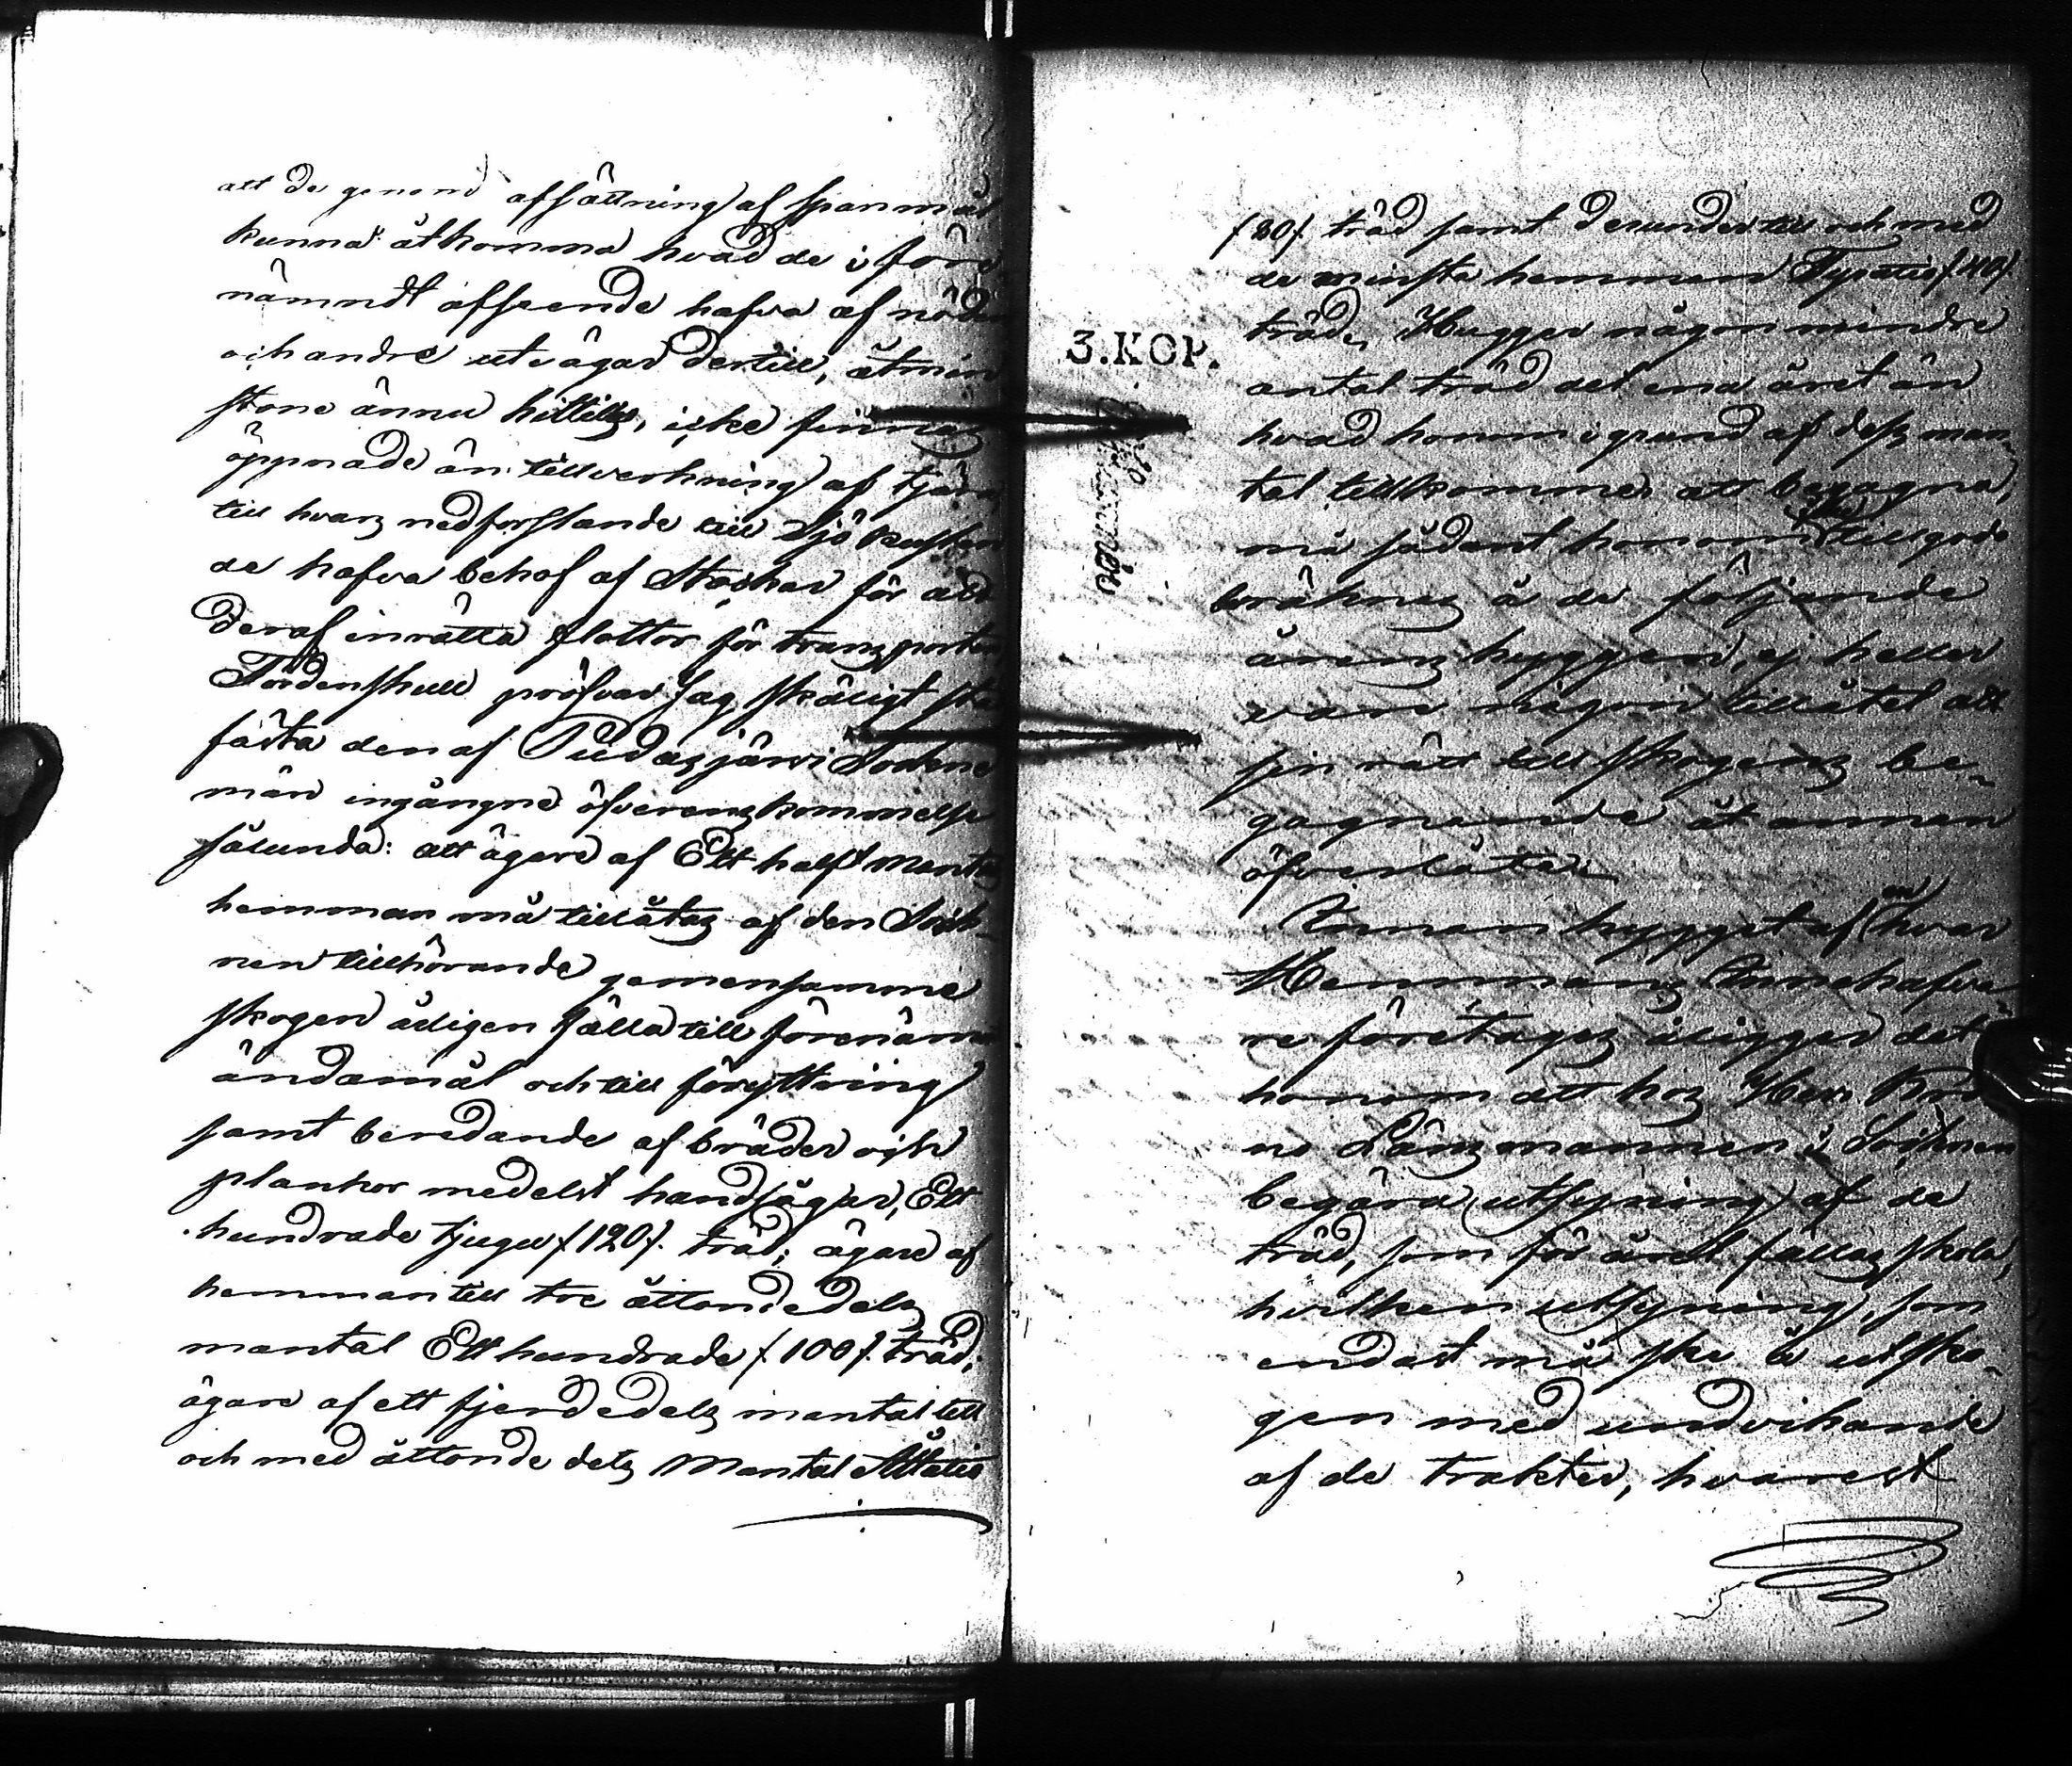 att de genom afsättning af spanmål
kunna åtkomma hvad de i före
nämndt afseende hafva af nöden
och andre utvägar dertill, åtmin
stone ännu hittills, icke finnas
öppnade än tillverkning af tjära,
till hvars nedforslande till Sjökusten
de hafva behof af Stockar för att
deraf inrätta flottor för transporten
Fördenskull pröfvar Jag skäligt sta
fästa den af Pudasjärvi Sockne
män ingångne öfverenskommelse
sålunda: att ägare af Ett halft Mantals
hemman må tillåtas af den Sock-
nen tillhörande gemensamme
skogen årligen fälla till förenämn
ändamål och till föryttring
samt beredande af bräder och
plankor medelst handsågar, Ett
hundrade tjugu /.120/. träd; ägare af
hemman till tre åttondedels
mantal Ett hundrade /.100/. träd;
ägare af ett fjerdedels mantal till
och med åttondedels Mantal Åttatio
/80/. träd samt derunder till och med
de minsta hemman Fyratio /.40/.
träd, Hugger någon mindre
antal träd det ena året än
hvad honom i grund af dess man-
tal tillkommer att begagna,
må sådant honom icke till godo
beräknas å de följande
årens hyggen, ej heller
vare någon tillåtet att
sin rätt till skogens be-
gagnande åt annan
öfverlåta.
Innan hygget af en hvar
Hemmans Innehafva-
re företages åligger det
honom att hos Herr Kro
no Länsmannen i Socknen
begära utsyning af de
träd, som för året fällas skola,
hvilken utsyning, som
endast må ske å utsko-
gen med undvikande
af de trakter, hvarest
3.KOP.